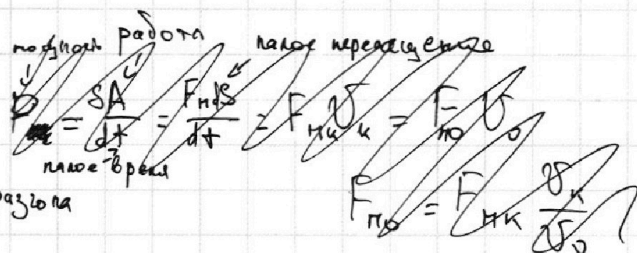 мощность работа малое перемещение
P = δA/dt = Fнds/dt = Fнк υк = Fно υо
малое время
разгона
Fно = Fнк υк/υо